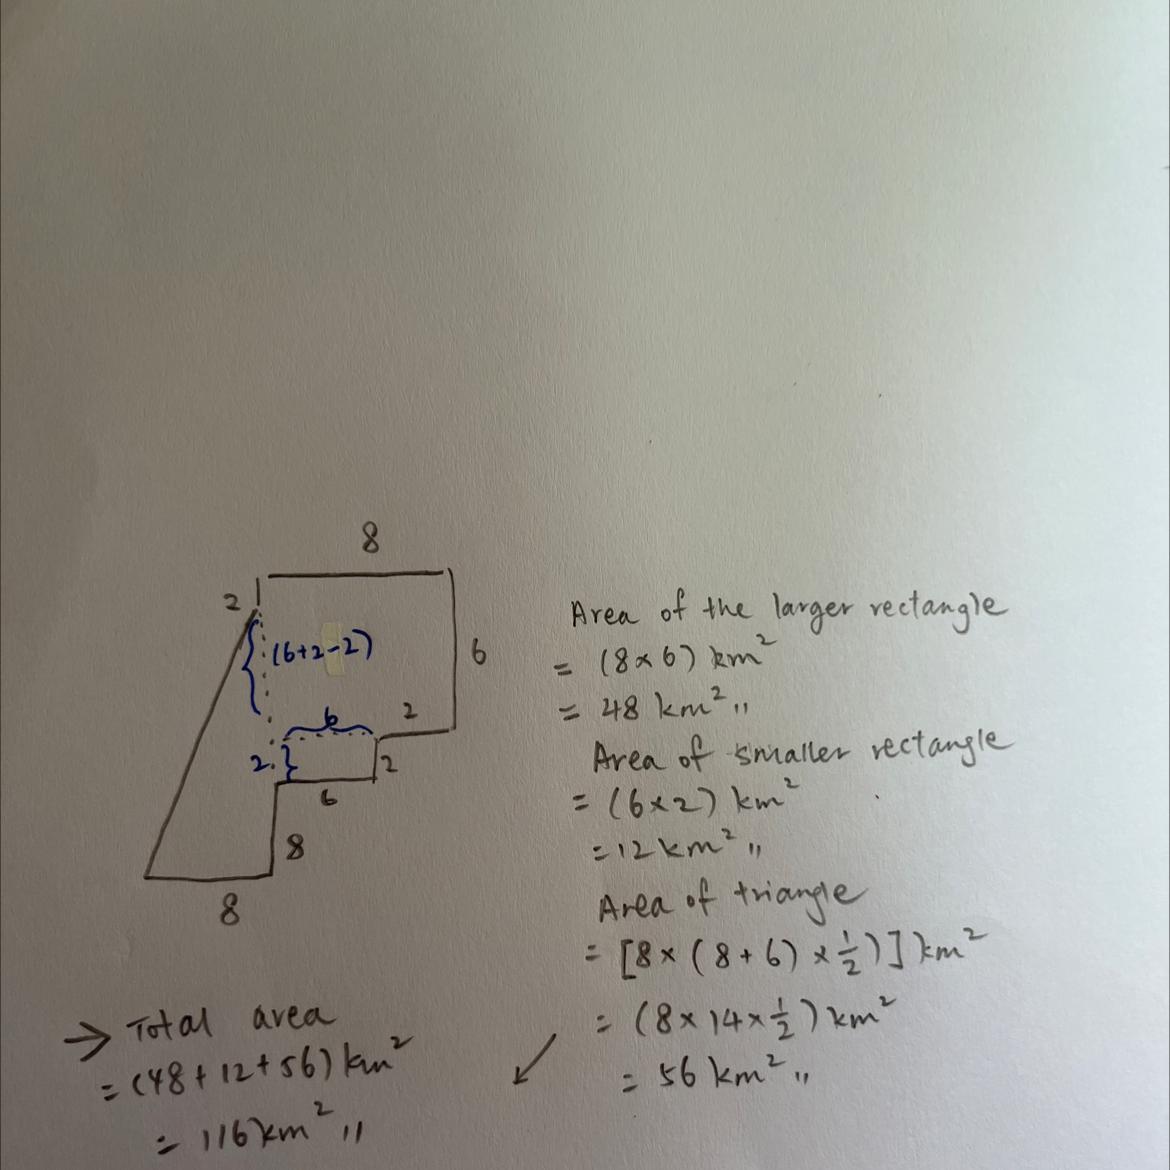 8
2
(6+2-2)
6
6
2
2.
2
6
8
8
Area of the larger rectangle
= (8×6) km²
= 48 km²,,
Area of smaller rectangle
= (6×2) km²
= 12 km²,,
Area of triangle
= [8×(8+6)×½)] km²
= (8×14×½) km²
= 56 km²,,
→ Total area
= (48+12+56) km²
= 116 km²,,